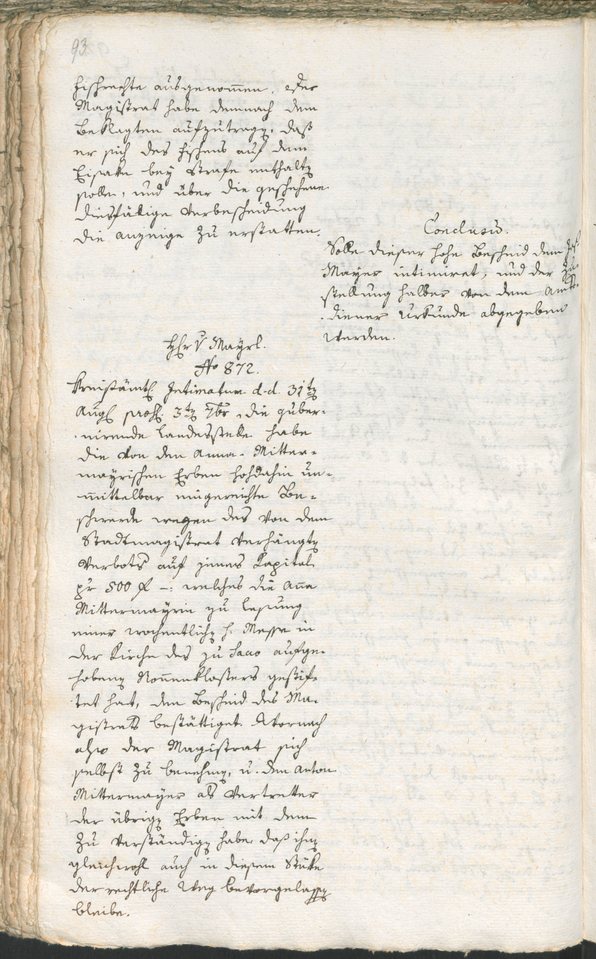 93.
fischrechte ausgenommen. Der
Magistrat habe demnach dem
Beklagten aufzutragen, daß
er sich des fischens auf dem
Eisake bey Strafe enthalten
solle, und über die geschehene
dießfälige Verbescheidung
die anzeige zu erstatten.
Conclusum.
Solle dieser hohe Bescheid dem
Mayer intimiret, und der Zu-
stellung halber von dem Amts-
diener Urkunde abgegeben
werden.
H: v Mayrl.
No 872.
Kreisämtl Intimatum d.d. 31ten
Aug prs: 3ten 7br, die guber-
nirende Landesstelle habe
die von den Anna-Mitter-
mayrischen Erben hochdahin un-
mittelbar eingereichte Be-
schwerde wegen des von dem
Stadtmagistrat verhängten
Verbots auf jenes Kapital
pr 500 f –: welches die Anna
Mittermayrin zu Lesung
einer wochentlichen h. Messe in
der Kirche des zu aufge-
hobenen Nonnenklosters gestif-
tet hat, den Bescheid des Ma-
gistrats bestättiget. Wornach
also der Magistrat sich
selbst zu benehmen, u. den Anton
Mittermayer als Vertretter
der übrigen Erben mit dem
zu verständigen habe daß ihnen
gleichwohl auch in diesem Stüke
der rechtliche Weg bevorgelassen
bleibe.